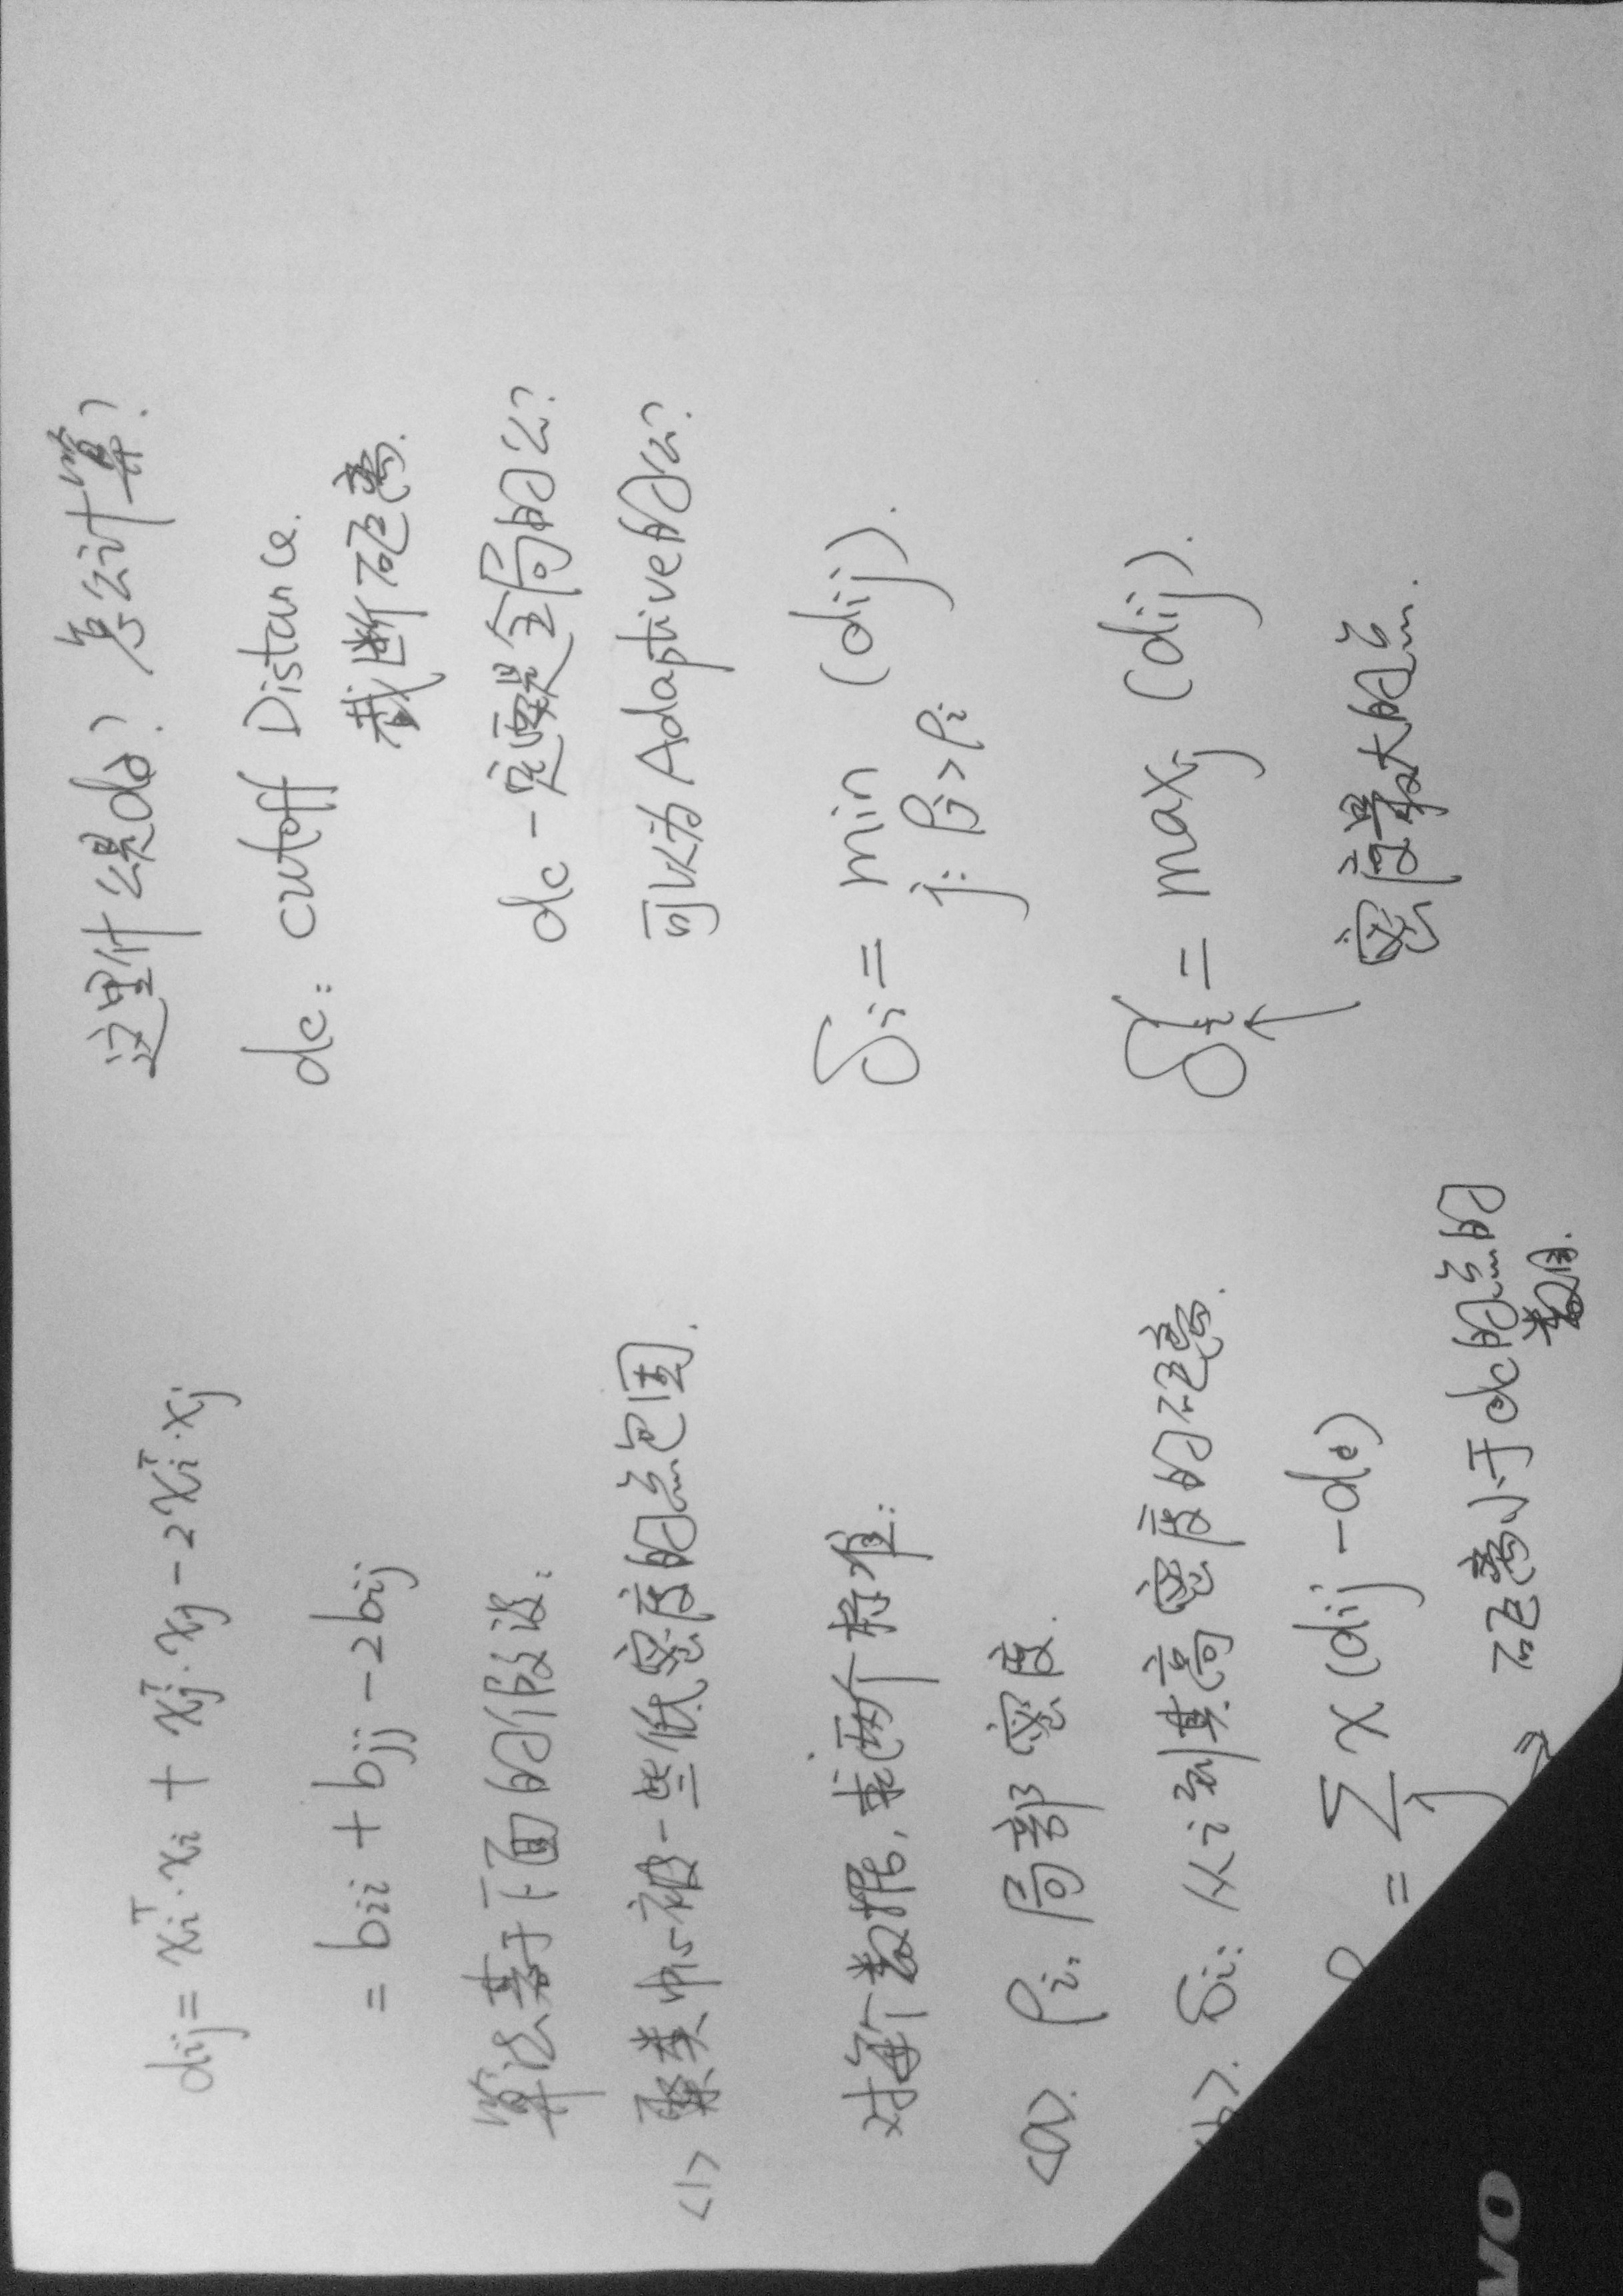 dij = xiᵀ·xi + xjᵀ·xj - 2xiᵀ·xj
= bii + bjj - 2bij
算法基于下面的假设:
<1> 聚类中心被一些低密度的点包围.
对每个数据,求两个标准:
<a>. ρi, 局部密度.
<b>. δi: 从i到其高密度的距离.
= Σj χ(dij - dc)
⇒ 距离小于dc的点的
数目.
这里什么是dc? 怎么计算?
dc: cutoff Distance.
截断距离.
dc一定要是全局的么?
可以为Adaptive的么?
δi = min (dij).
j: ρj > ρi
δi = maxj (dij).
密度最大的点.
vo